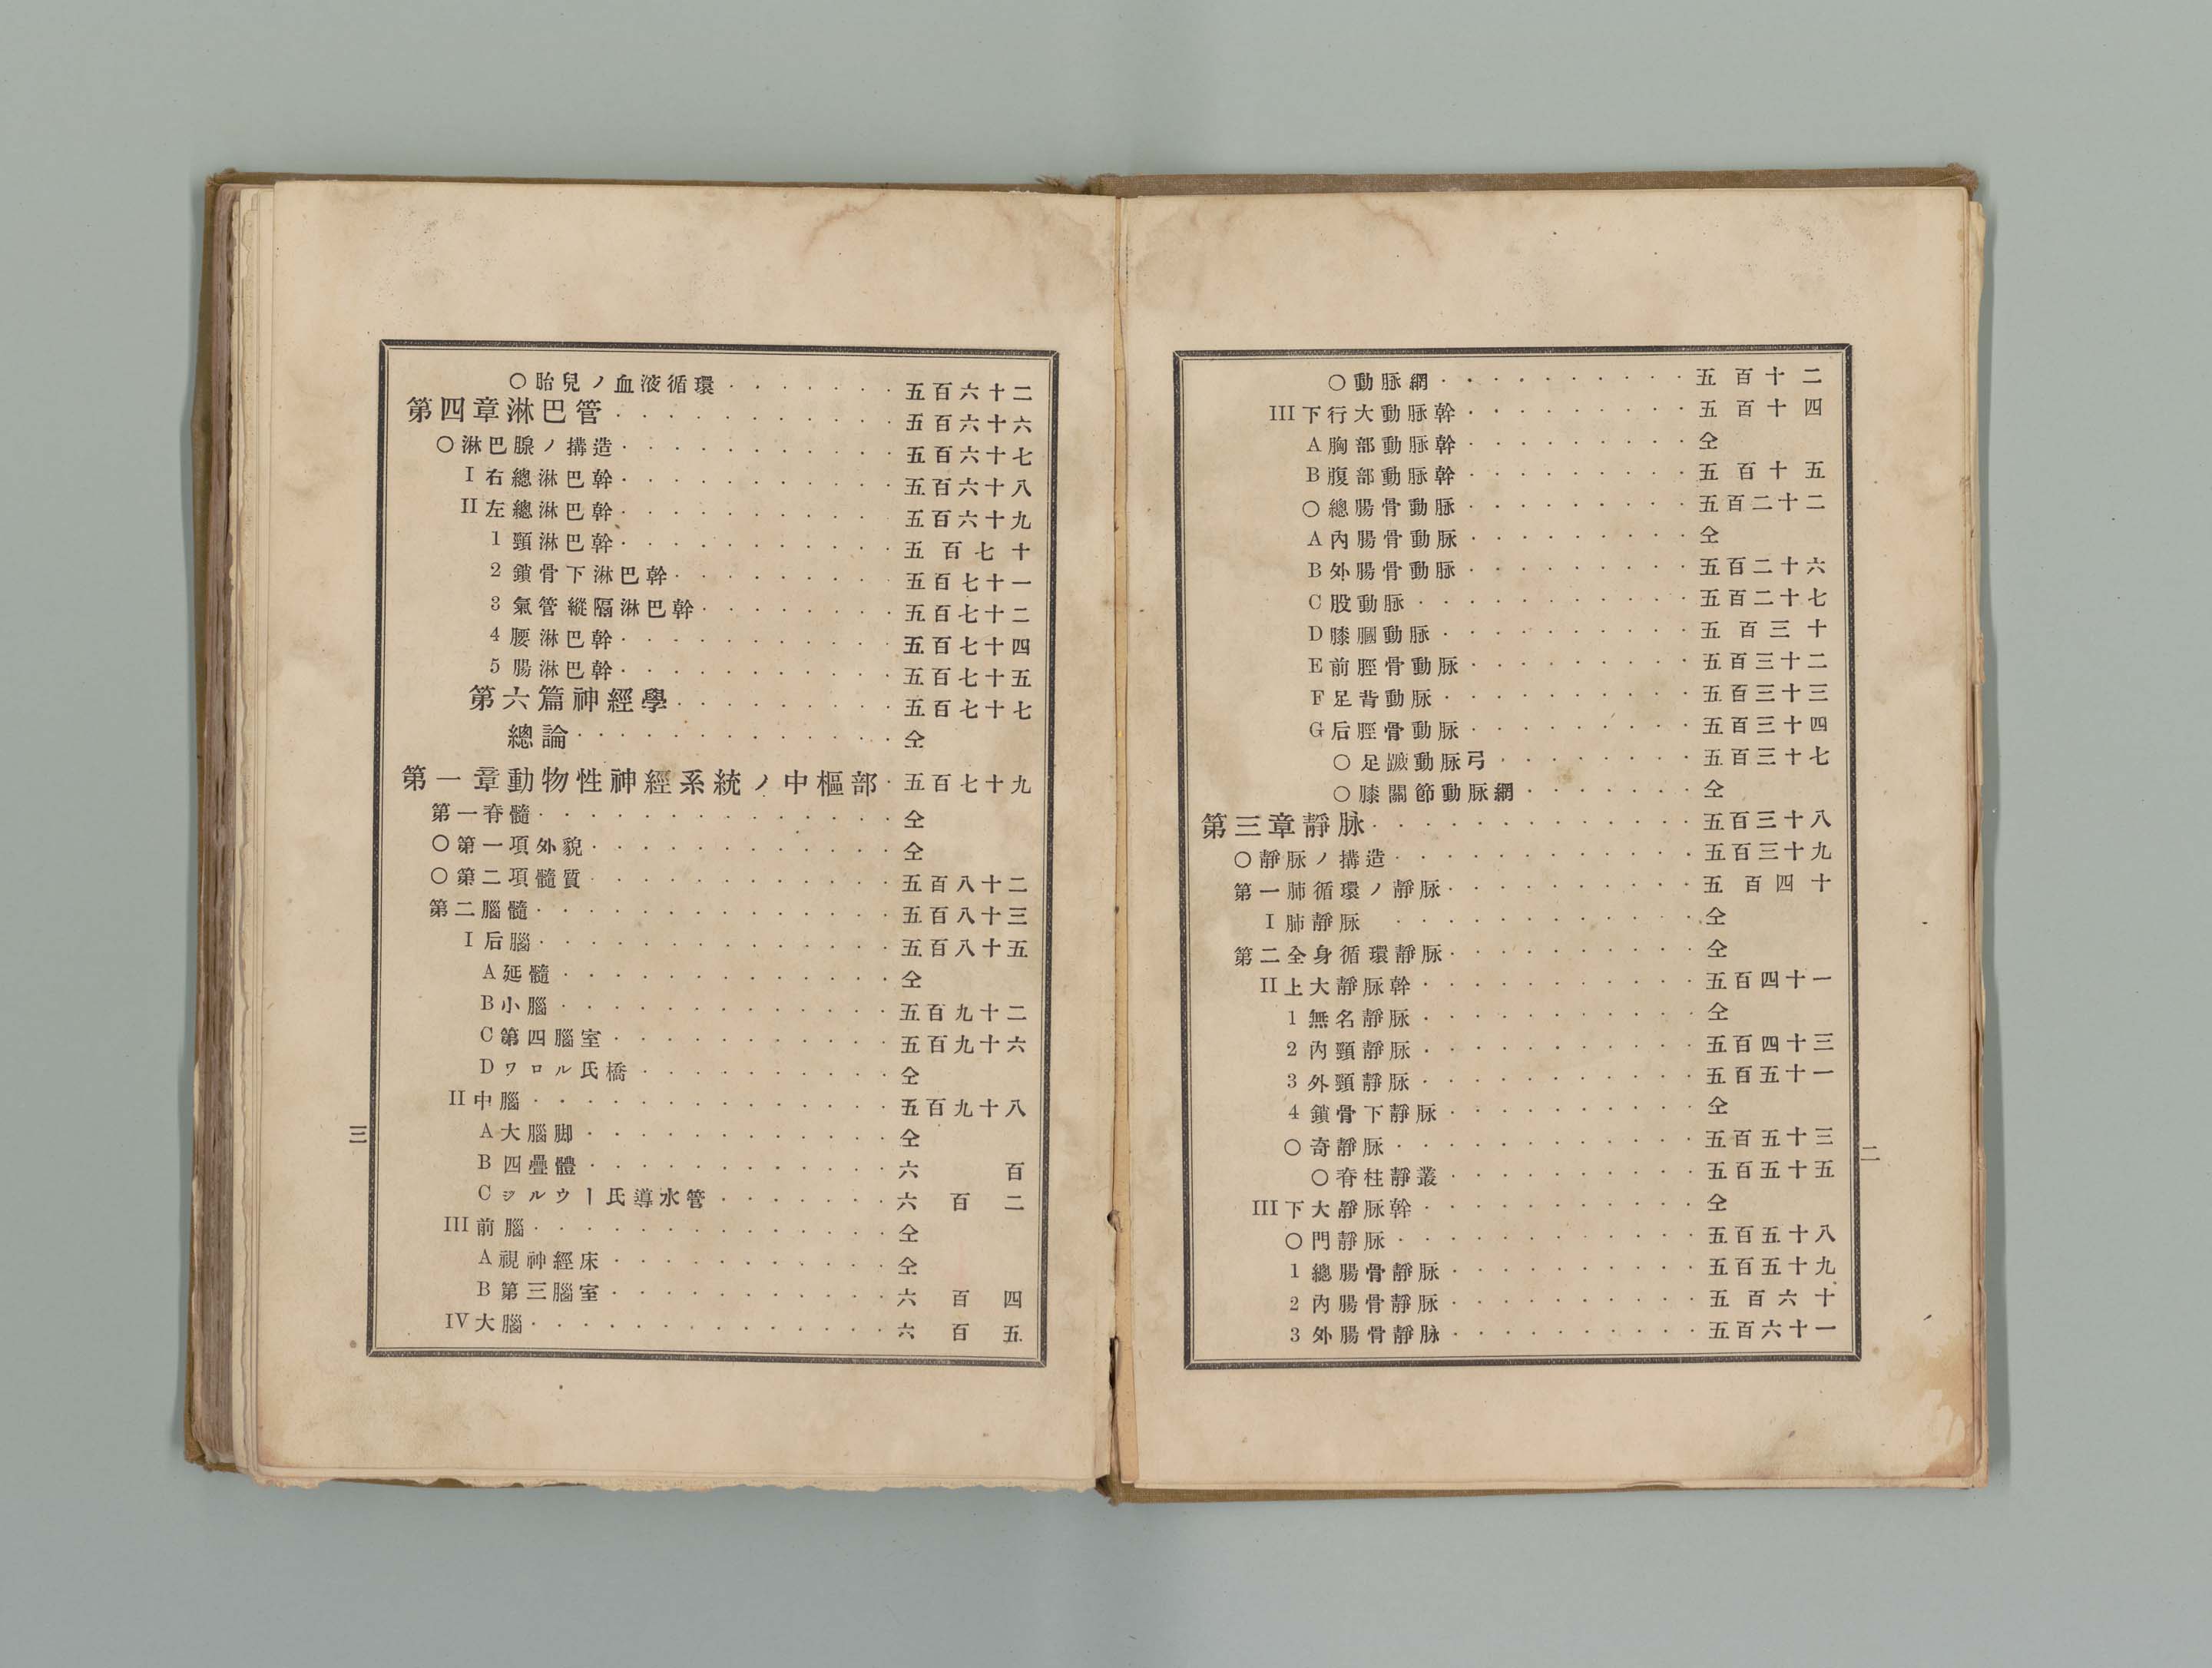 〇動脈網・・・・・・・・・・五百十二
III下行大動脈幹・・・・・・・・・五百十四
A胸部動脈幹・・・・・・・・・仝
B腹部動脈幹・・・・・・・・・五百十五
〇總腸骨動脈・・・・・・・・・五百二十二
A內腸骨動脈・・・・・・・・・仝
B外腸骨動脈・・・・・・・・・五百二十六
C股動脈・・・・・・・・・・・五百二十七
D膝膕動脈・・・・・・・・・・五百三十
E前脛骨動脈・・・・・・・・・五百三十二
F足背動脈・・・・・・・・・・五百三十三
G后脛骨動脈・・・・・・・・・五百三十四
〇足蹠動脈弓・・・・・・・・五百三十七
〇膝關節動脈網・・・・・・・仝
第三章靜脉・・・・・・・・・・・・五百三十八
〇靜脈ノ搆造・・・・・・・・・・・・五百三十九
第一肺循環ノ靜脈・・・・・・・・・・五百四十
I肺靜脈・・・・・・・・・・・・仝
第二全身循環靜脈・・・・・・・・・・仝
II上大靜脈幹・・・・・・・・・・・五百四十一
1無名靜脈・・・・・・・・・・・仝
2內頸靜脈・・・・・・・・・・・五百四十三
3外頸靜脈・・・・・・・・・・・五百五十一
4鎖骨下靜脈・・・・・・・・・・仝
〇奇靜脈・・・・・・・・・・・・五百五十三
〇脊柱靜叢・・・・・・・・・・五百五十五
III下大靜脈幹・・・・・・・・・・・仝
〇門靜脈・・・・・・・・・・・・五百五十八
1總腸骨靜脈・・・・・・・・・・五百五十九
2內腸骨靜脈・・・・・・・・・・五百六十
3外腸骨靜脉・・・・・・・・・・五百六十一
二
〇胎兒ノ血液循環・・・・・・・五百六十二
第四章淋巴管・・・・・・・・・・・五百六十六
〇淋巴腺ノ搆造・・・・・・・・・・・五百六十七
I右總淋巴幹・・・・・・・・・・・五百六十八
II左總淋巴幹・・・・・・・・・・・五百六十九
1頸淋巴幹・・・・・・・・・・・五百七十
2鎖骨下淋巴幹・・・・・・・・・五百七十一
3氣管縱隔淋巴幹・・・・・・・・五百七十二
4腰淋巴幹・・・・・・・・・・・五百七十四
5腸淋巴幹・・・・・・・・・・・五百七十五
第六篇神經學・・・・・・・・・五百七十七
總論・・・・・・・・・・・・・仝
第一章動物性神經系統ノ中樞部・五百七十九
第一脊髓・・・・・・・・・・・・・・仝
〇第一項外貌・・・・・・・・・・・・仝
〇第二項髓質・・・・・・・・・・・・五百八十二
第二腦髓・・・・・・・・・・・・・・五百八十三
I后腦・・・・・・・・・・・・・・五百八十五
A延髓・・・・・・・・・・・・・仝
B小腦・・・・・・・・・・・・・五百九十二
C第四腦室・・・・・・・・・・・五百九十六
Dワロル氏橋・・・・・・・・・・仝
II中腦・・・・・・・・・・・・・・五百九十八
A大腦脚・・・・・・・・・・・・仝
B四疊體・・・・・・・・・・・・六百
Cヲルウー氏導水管・・・・・・・六百二
III前腦・・・・・・・・・・・・・・仝
A視神經床・・・・・・・・・・・仝
B第三腦室・・・・・・・・・・・六百四
IV大腦・・・・・・・・・・・・・・六百五
三